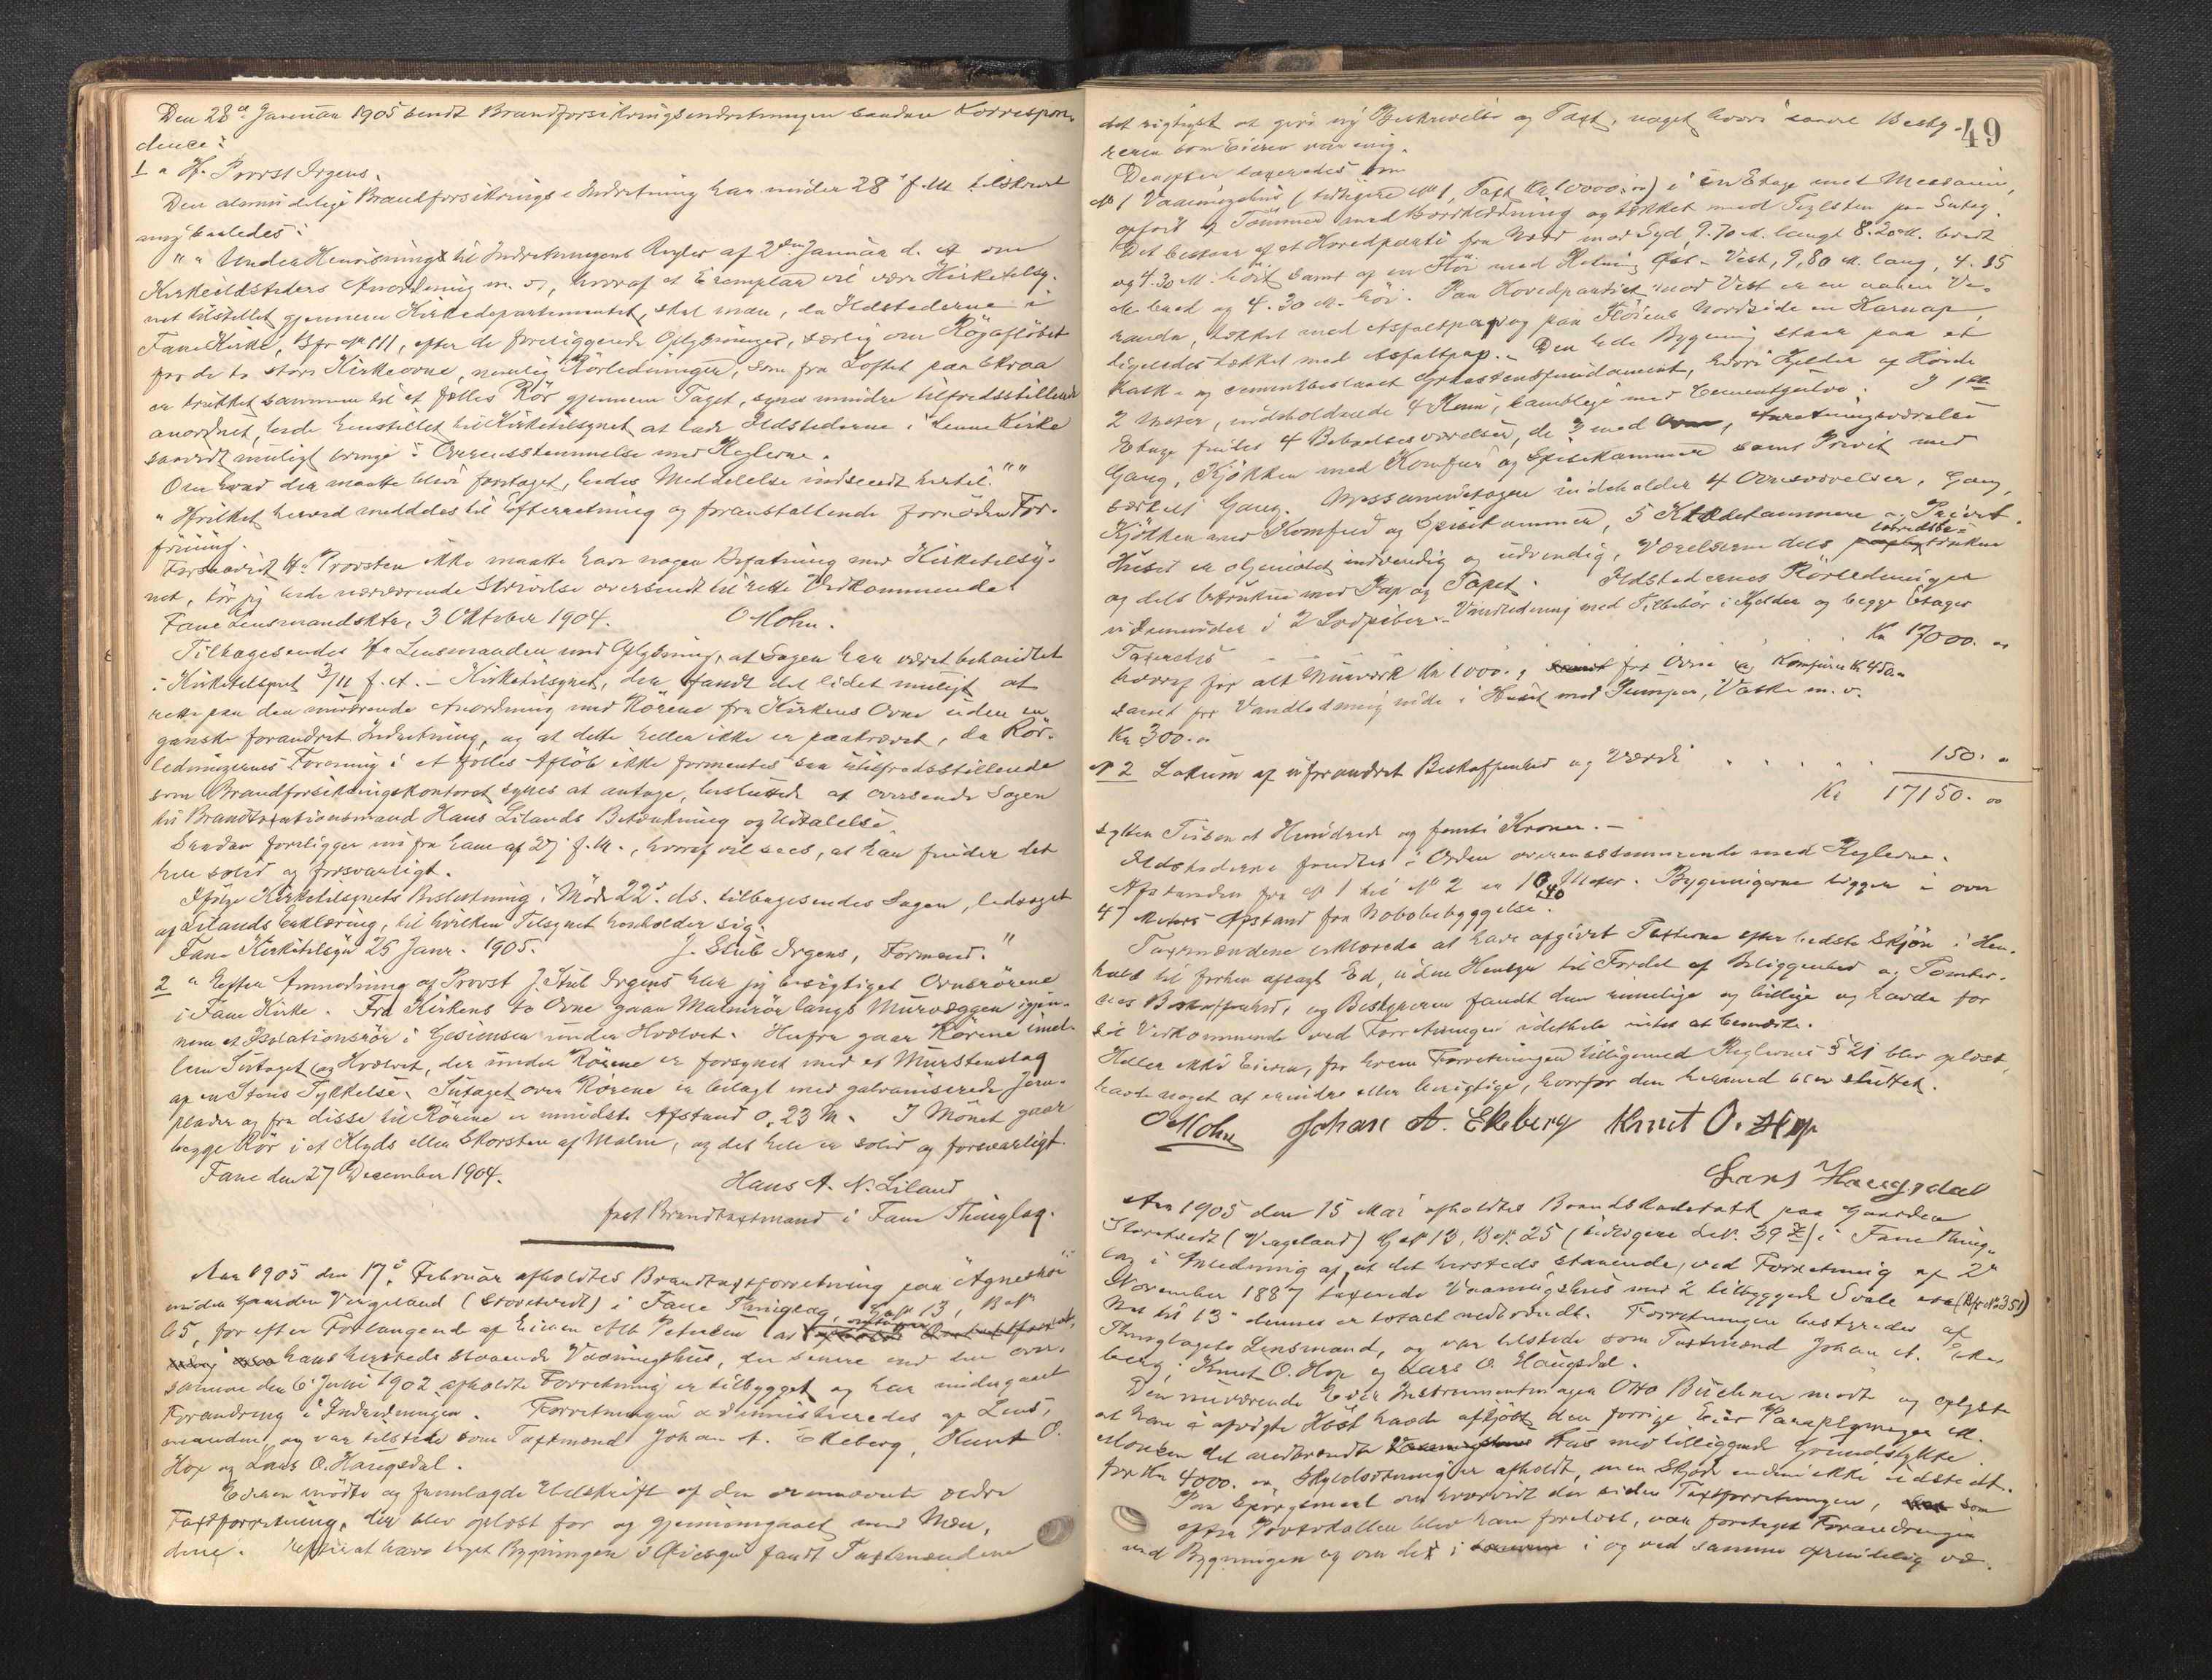 Den 28de Januar 1905 sendt Brandforsikringsindretningen saadan Korrespon-
dence:
1 " Hr. Provst Irgens.
Den almindelige Brandforsikrings-Indretning har under 28' f. M. tilskrevet
mig saaledes:
" " Under Henvisning til Indretningens Regler af 2den Januar d. A. om
Kirkeildsteders Anordning m. v., hvoraf et Exemplar vil være Kirketilsy-
net tilstillet gjennem Kirkedepartementet, skal man, da Ildstederne i
Fane Kirke, Bfr. No 111, efter de foreliggende Oplysninger, særlig om Rögaflöbet
for de to store Kirkeovne, nemlig Rörledningen, som fra Loftet paa Skraa
er trukket sammen til et fælles Rör gjennem Taget, synes mindre tilfredsstillende
anordnet, bede henstillet til Kirketilsynet at lade Ildstederne i denne Kirke
saavidt muligt bringe i Overensstemmelse med Reglerne.
Om hvad der maatte blive foretaget, bedes Meddelelse indsendt hertil." "
" Hvilket herved meddeles til Efterretning og foranstaltende fornöden For-
föining.
Forsaavidt Hr. Provsten ikke maatte have nogen Befatning med Kirketilsy-
net, tör jeg bede nærværende Skrivelse oversendt til rette Vedkommende.
Fane Lensmandsktr, 3 Oktober 1904. O Mohn.
Tilbagesendes Hr. Lensmanden med Oplysning, at Sagen har været behandlet
i Kirketilsynet 3/11 f. A. – Kirketilsynet, der fandt det lidet muligt at
rette paa den nuværende Anordning med Rörene fra Kirkens Ovne uden en
ganske forandret Indretning, og at dette heller ikke er paakrævet, da Rör-
ledningernes Forening i et fælles Aflöb ikke formentes saa utilfredsstillende
som Brandforsikringskontoret synes at antage, besluttede at oversende Sagen
til Brandtaxationsmand Hans Lilands Betænkning og Udtalelse.
Saadan foreligger nu fra ham af 27 f. M., hvoraf vil sees, at han finder det
hele solid og forsvarligt.
Ifölge Kirketilsynets Beslutning i Möde 22' ds. tilbagesendes Sagen, ledsaget
af Lilands Erklæring, til hvilken Tilsynet henholder sig.
Fane Kirketilsyn 25 Janr. 1905. J. Stub Irgens, Formand."
2 " Efter Anmodning af Provst J. Stub Irgens har jeg besigtiget Ovnsrörene
i Fane Kirke. Fra Kirkens to Ovne gaar Malmrör langs Murvæggen igjen-
nem et Isolationsrör i Gesimsen under Hvælvet. Herfra gaar Rörene imel-
lem Sutaget og Hvælvet, der under Rörene er forsynet med et Murstenslag
af en Stens Tykkelse. Sutaget over Rörene er belagt med galvaniserede Jern-
plader og fra disse til Rörene er mindste Afstand 0,23 M. I Mönet gaar
begge Rör i et Klyds eller Skorsten af Malm, og det hele er solid og forsvarligt.
Fane den 27 December 1904.
Hans A. N. Liland
fast Brandtaxtmand i Fane Thinglag.
Aar 1905 den 17de Februar afholdtes Brandtaxtforretning paa "Agneshöi"
under Gaarden Vingeland (Storetvedt) i Fane Thinglag, G.No 13, B.No
65, for efter Forlangende af Eieren Alb Petersen at omtaxere
hans hersteds staaende Vaaningshus, der senere end den over
samme den 6 Juni 1902 afholdte Forretning er tilbygget og har undergaaet
Forandring i Indredningen. Forretningen administreredes af Lens-
manden, og var tilstede som Taxtmænd Johan A. Ekeberg, Knut O.
Hop og Lars O. Haugsdal.
Eieren mödte og fremlagde Udskrift af den ovennævnte ældre
Taxtforretning, der blev oplæst for og gjennemgaaet med Mæn-
dene. Efter at have taget Bygningen i Öiesyn fandt Taxtmændene
49
det rigtigst at give ny Beskrivelse og Taxt, noget hvori saavel Besty-
reren som Eieren var enig.
Derefter taxeredes
No 1 Vaaningshus (tidligere No 1, Taxt Kr. 10000.00) i en Etage med Messanin,
opfört af Tömmer med Bordklædning og tækket med Teglsten paa Sutag.
Det bestaar af et Hovedparti fra Nord mod Syd, 9.70 M. langt 8.20 M. bredt
og 4.30 M. höit samt af en Flöi med Retning Öst–Vest, 9,80 M. lang, 4.15
M. bred og 4.30 M. höi. Paa Hovedpartiet mod Vest er en aaben Ve-
randa, tækket med Asfaltpap og paa Flöiens Nordside en Karnap,
ligeledes tækket med Asfaltpap. – Den hele Bygning staar paa et
kalk- og cementbeslaaet Graastensfundament, hvori Kjelder af Höide
2 Meter, indeholdende 4 Rum, samtlige med Cementgulve. I 1ste
Etage findes 4 Beboelsesværelser, de 3 med Ovne, Anretningsværelse
Gang, Kjökken med Komfur og Spisekammer samt Privet med
særskilt Gang. Messaninetagen indeholder 4 Ovnsværelser, Gang,
Kjökken med Komfur og Spisekammer, 5 Klædekammere og Privet.
Huset er oljemalet indvendig og udvendig, Værelserne dels lærredsbe-
trukne
og dels betrukne med Pap og Tapet. Ildstedernes Rörledninger
udmunder i 2 Lodpiber. Vandledning med Tilbehör i Kjelder og begge Etager
Taxeredes Kr 17000. 00
hvoraf for alt Murværk Kr 1000. , for Ovne og Komfurer Kr. 450.
samt for Vandledning inde i Huset med Pumper, Vaske m. v.
Kr. 300. 00
No 2 Lokum af uforandret Beskaffenhed og Værdi . . . . . 150. "
Kr 17150. 00
sytten Tusen et Hundrede og femti Kroner. –
Ildstederne fandtes i Orden overensstemmende med Reglerne.
Afstanden fra No 1 til No 2 er 10,40 Meter. Bygningerne ligger i over
47 Meters Afstand fra Nabobebyggelse.
Taxtmændene erklærede at have afgivet Taxterne efter bedste Skjön i Hen-
hold til forhen aflagt Ed, uden Hensyn til Fordel af Beliggenhed og Tomter-
nes Beskaffenhed, og Bestyreren fandt dem rimelige og billige og havde for
sit Vedkommende ved Forretningen idethele intet at bemærke.
Heller ikke Eieren, for hvem Forretningen tilligemed Reglernes § 21 blev oplæst,
havde noget at erindre eller berigtige, hvorfor den hermed blev sluttet.
O Mohn Johan A. Ekeberg Knut O. Hop
Lars Haugsdal
Aar 1905 den 15 Mai afholdtes Brandskadetaxt paa Gaarden
Storetvedt (Vingeland) G.No 13, B.No 25 (tidligere L.No. 39 z) i Fane Thing-
lag i Anledning af, at det hersteds staaende, ved Forretning af 2'
November 1887 taxerede Vaaningshus med 2 tilbyggede Svale (Bfr. No 351)
Nat til 13' dennes er totalt nedbrændt. Forretningen bestyredes af
Thinglagets Lensmand, og var tilstede som Taxtmænd Johan A. Eke-
berg, Knut O. Hop og Lars O. Haugsdal.
Den nuværende Eier Instrumentmager Otto Büchner mödte og oplyste
at han i afvigte Höst havde afkjöbt den forrige Eier Paraplymager M.
Monsen det nedbrændte Hus med tilliggende Grundstykke
for Kr 4000. 00 Skyldsætning er afholdt, men Skjöde endnu ikke udstedt.
Paa Spörgsmaal om hvorvidt der siden Taxtforretningen, som
efter Protokollen blev ham forelæst, var foretaget Forandringer
ved Bygningen og om det i og ved samme oprindelig væ-